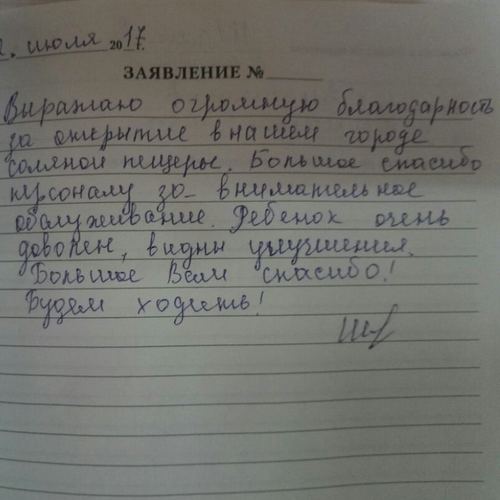 июля 2017 г.
ЗАЯВЛЕНИЕ №
Выражаю огромную благодарность
за открытие в нашем городе
соляной пещеры. Большое спасибо
персоналу за внимательное
обслуживание. Ребенок очень
доволен, видны улучшения.
Большое Всем спасибо!
Будем ходить!